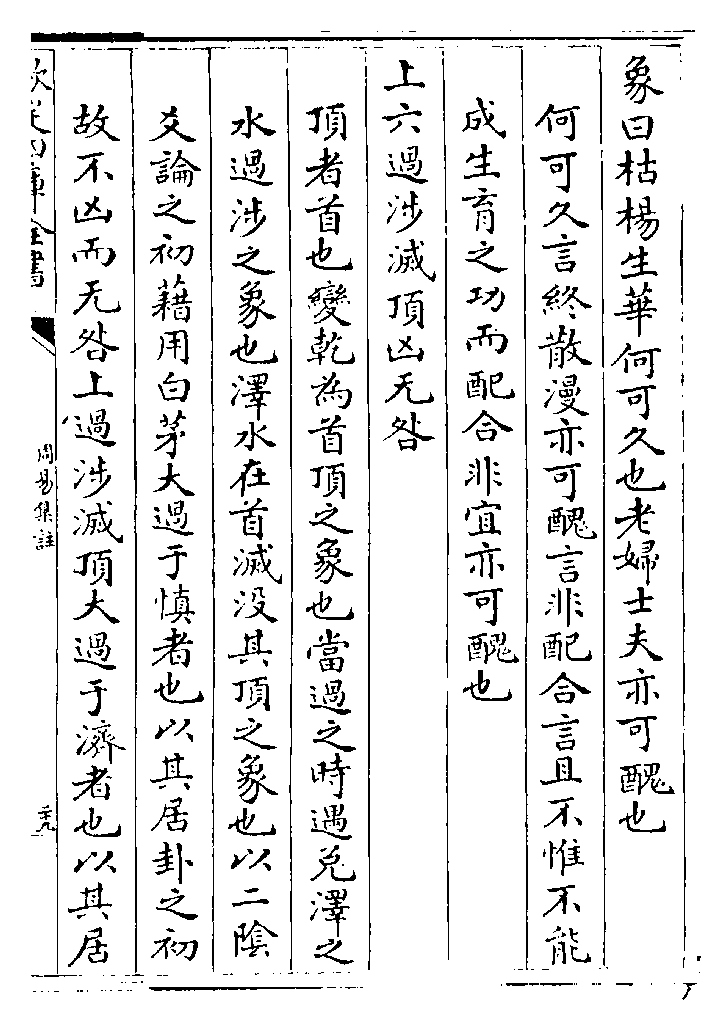 象曰枯楊生華何可久也老婦士夫亦可醜也
何可久言終散漫亦可醜言非配合言且不惟不能
成生育之功而配合非宜亦可醜也
上六過涉滅頂凶无咎
頂者首也變乾為首頂之象也當過之時遇兌澤之
水過涉之象也澤水在首滅没其頂之象也以二陰
爻論之初藉用白茅大過于慎者也以其居卦之初
故不凶而无咎上過涉滅頂大過于濟者也以其居
欽定四庫全書
周易集註
三九